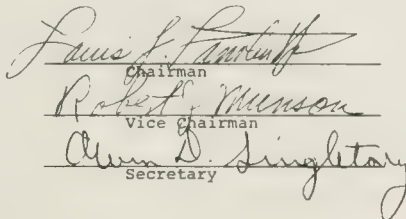 Louis J.
Chairman
Robert Munson
Vice Chairman
Alvin D. Singletary
Secretary